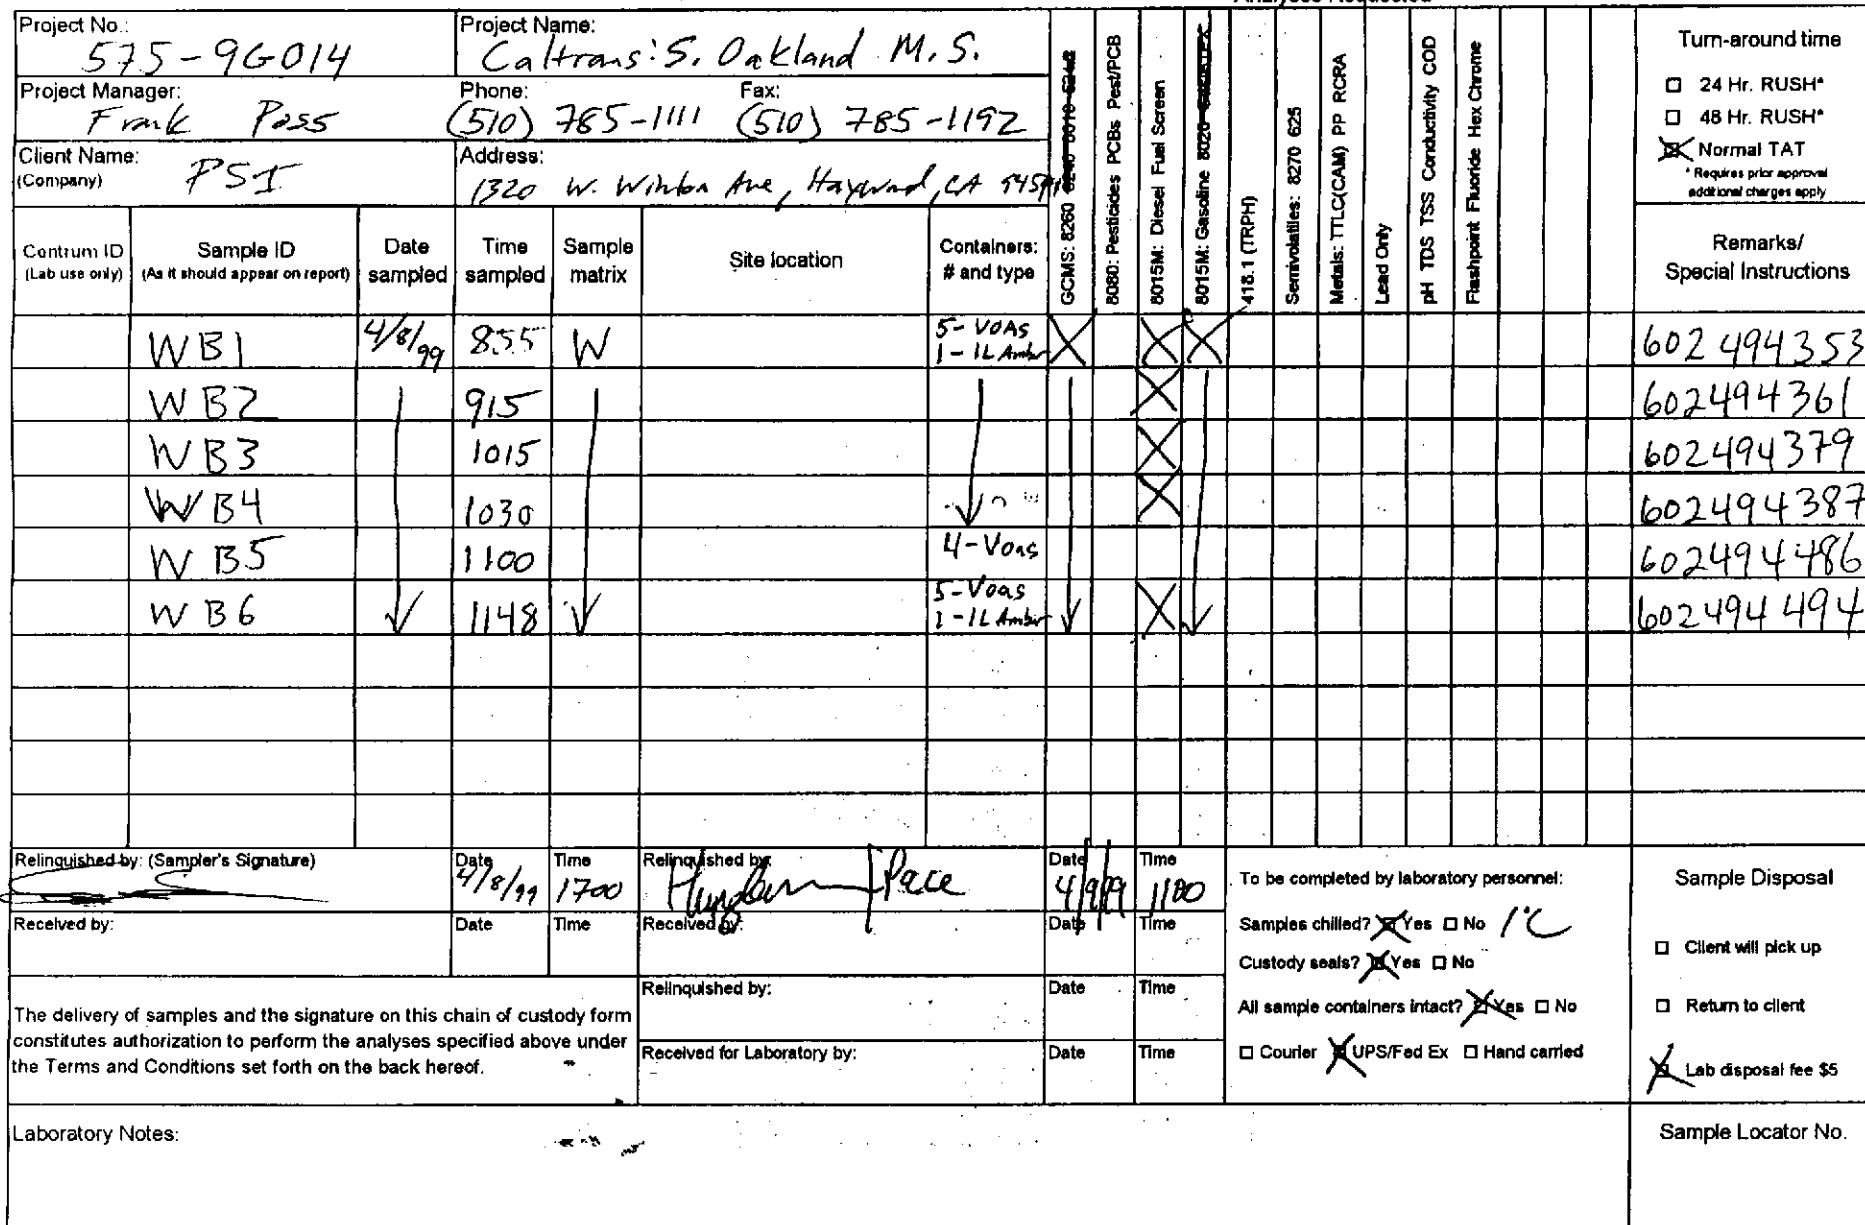 Project No.: 575-9G014
Project Name: Caltrans: S. Oakland M.S.
Project Manager: Frank Poss
Phone: (510) 785-1111
Fax: (510) 785-1192
Client Name: (Company) PSI
Address: 1320 W. Winton Ave, Hayward, CA
Turn-around time
24 Hr. RUSH*
48 Hr. RUSH*
Normal TAT
* Requires prior approval
additional charges apply
Contrum ID (Lab use only)
Sample ID (As it should appear on report)
Date sampled
Time sampled
Sample matrix
Site location
Containers: # and type
GCMS: 8260 8240 8010 524.2
8080: Pesticides PCBs Pest/PCB
8015M: Diesel Fuel Screen
8015M: Gasoline 8020
418.1 (TRPH)
Semivolatiles: 8270 625
Metals: TTLC(CAM) PP RCRA
Lead Only
pH TDS TSS Conductivity COD
Flashpoint Fluoride Hex Chrome
Remarks/ Special Instructions
WB1 4/8/99 855 W 5-VOAs 1-1L Amber X X X 602494353
WB2 915 X 602494361
WB3 1015 X 602494379
WB4 1030 X 602494387
WB5 1100 4-Voas 602494486
WB6 1148 5-Voas 1-1L Amber X 602494494
Relinquished by: (Sampler's Signature)
Date 4/8/99
Time 1700
Relinquished by: Pace
Date 4/9/99
Time 1100
Received by:
Date
Time
Received by:
Date
Time
Relinquished by:
Date
Time
Received for Laboratory by:
Date
Time
The delivery of samples and the signature on this chain of custody form
constitutes authorization to perform the analyses specified above under
the Terms and Conditions set forth on the back hereof.
To be completed by laboratory personnel:
Samples chilled? Yes No 1°C
Custody seals? Yes No
All sample containers intact? Yes No
Courier UPS/Fed Ex Hand carried
Sample Disposal
Client will pick up
Return to client
Lab disposal fee $5
Laboratory Notes:
Sample Locator No.